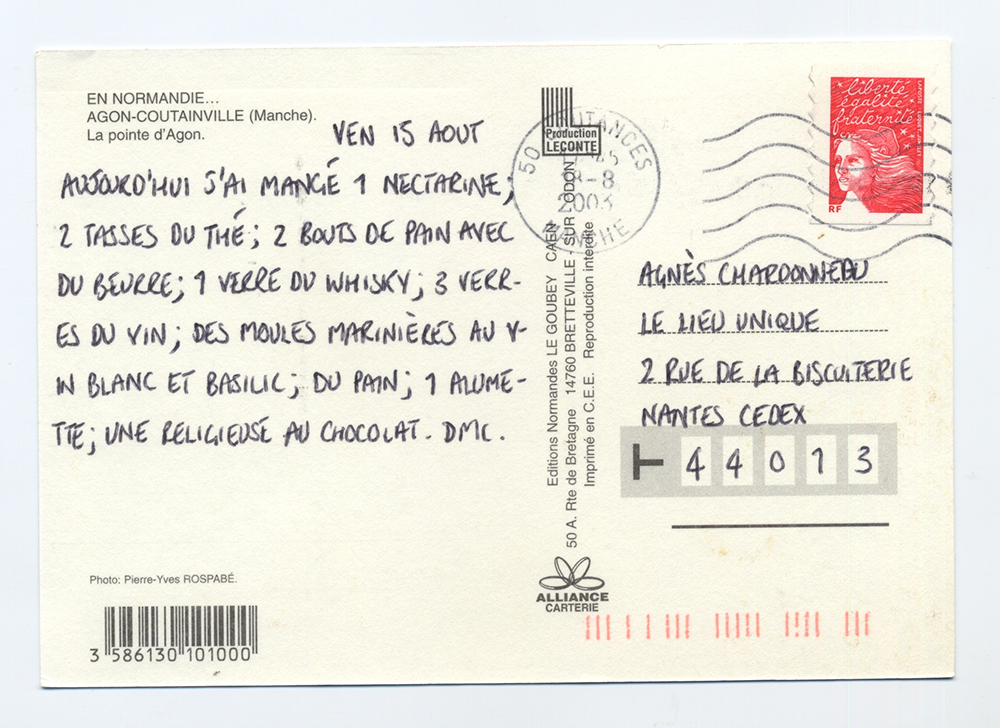 EN NORMANDIE...
AGON-COUTAINVILLE (Manche).
La pointe d'Agon.
VEN 15 AOUT
AUJOURD'HUI J'AI MANGÉ 1 NECTARINE;
2 TASSES DU THÉ; 2 BOUTS DE PAIN AVEC
DU BEURRE; 1 VERRE DU WHISKY; 3 VERR-
ES DU VIN; DES MOULES MARINIÈRES AU V-
IN BLANC ET BASILIC; DU PAIN; 1 ALUME-
TTE; UNE RELIGIEUSE AU CHOCOLAT. DMC.
Photo: Pierre-Yves ROSPABÉ.
3 586130 101000
Production
LECONTE
Editions Normandes LE GOUBEY CAEN
50 A. Rte de Bretagne 14760 BRETTEVILLE - SUR - ODON
Imprimé en C.E.E. Reproduction interdite
ALLIANCE
CARTERIE
50 COUTANCES
8-8
2003
MANCHE
liberté
égalité
fraternité
RF
AGNÈS CHARDONNEAU
LE LIEU UNIQUE
2 RUE DE LA BISCUITERIE
NANTES CEDEX
T 44013